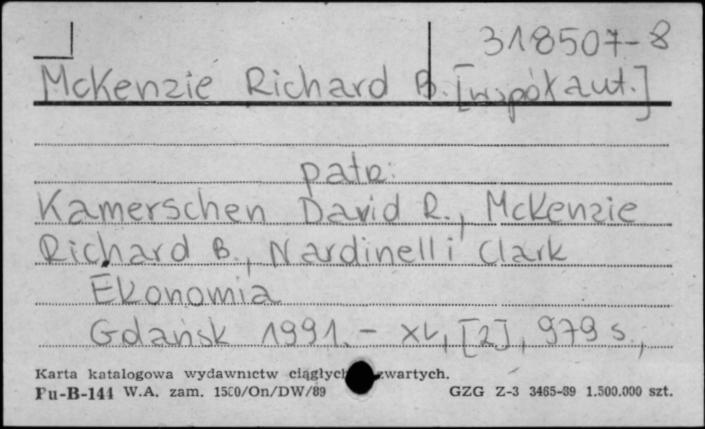 318507-8
McKenzie Richard B. [współaut.]
patrz:
Kamerschen David R., McKenzie
Richard B., Nardinelli Clark
Ekonomia
Gdańsk 1991. - XL, [2], 979 s.,
Karta katalogowa wydawnictw ciągłych zwartych.
Pu-B-144 W.A. zam. 1580/On/DW/89 GZG Z-3 3465-89 1.500.000 szt.